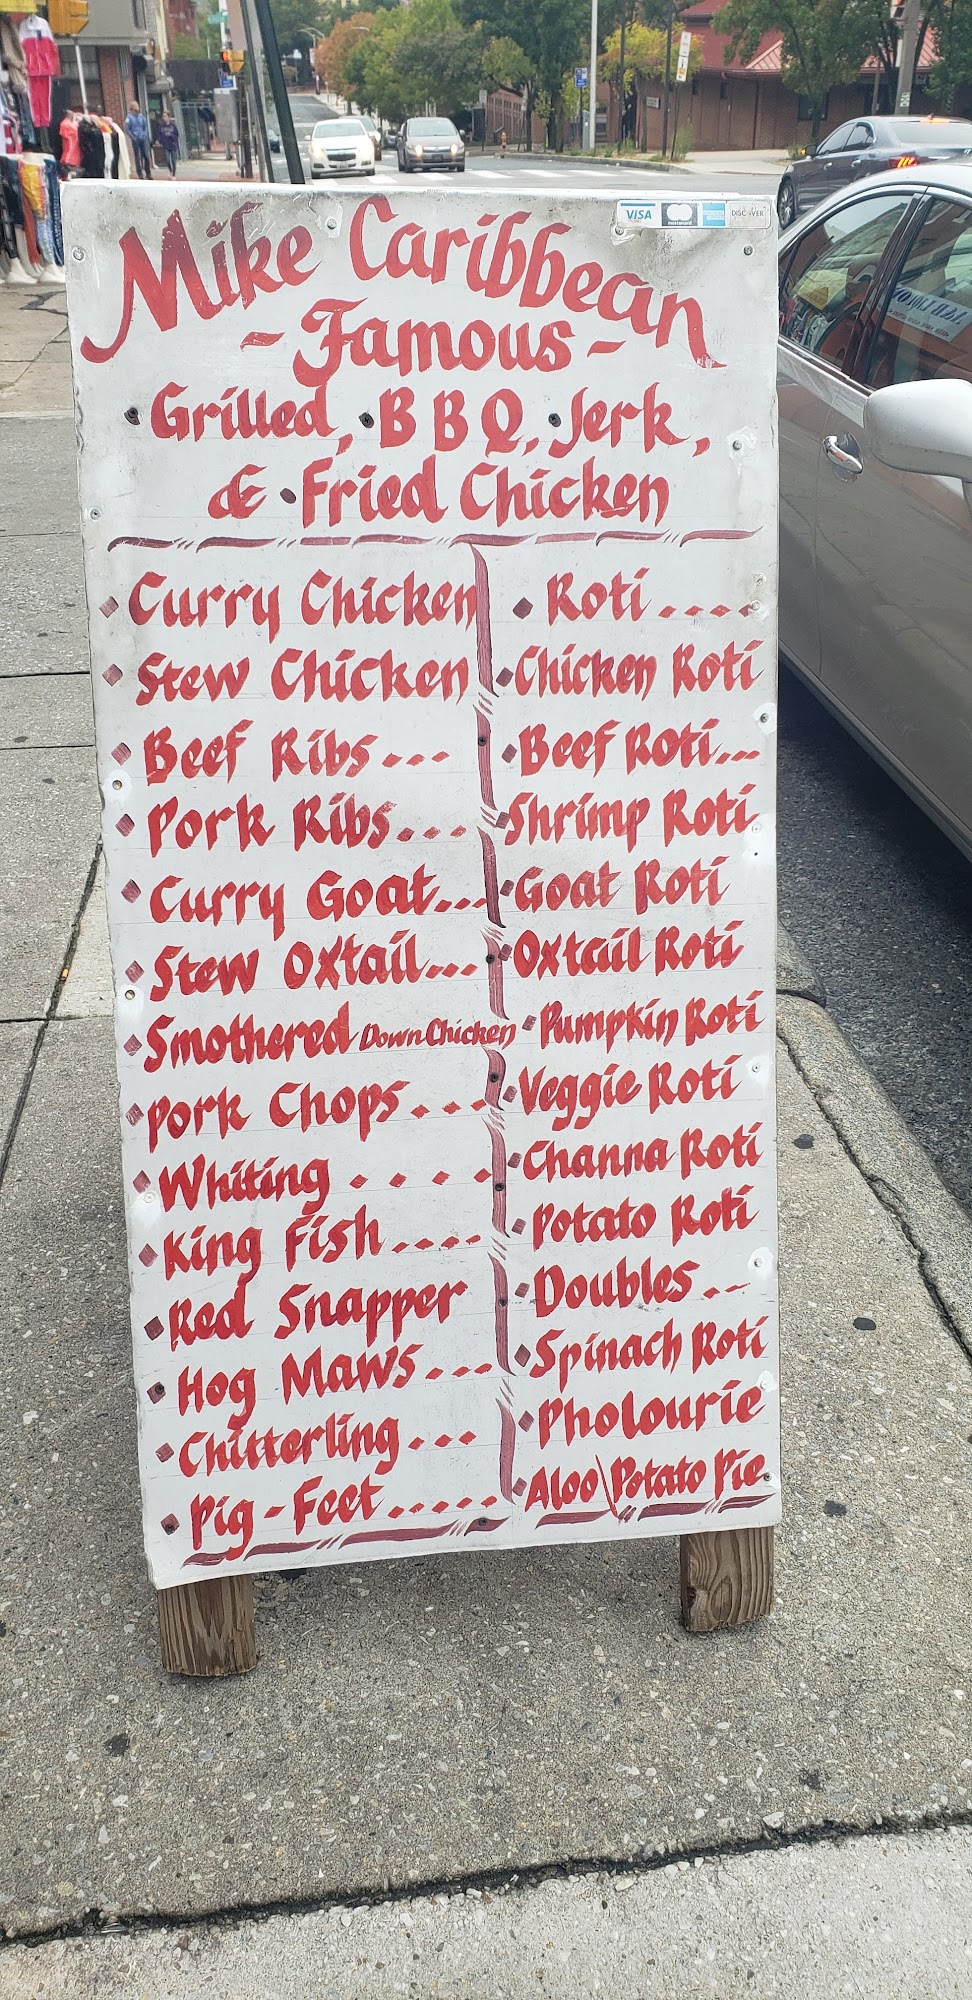 VISA
DISCOVER
Mike Caribbean
- Famous -
Grilled, BBQ, Jerk,
& Fried Chicken
Curry Chicken
Stew Chicken
Beef Ribs...
Pork Ribs....
Curry Goat...
Stew Oxtail...
Smothered Down Chicken
Pork Chops....
Whiting ....
King Fish....
Red Snapper
Hog Maws....
Chitterling...
Pig-Feet.....
Roti....
Chicken Roti
Beef Roti...
Shrimp Roti
Goat Roti
Oxtail Roti
Pumpkin Roti
Veggie Roti
Channa Roti
Potato Roti
Doubles..
Spinach Roti
Pholourie
Aloo\Potato Pie